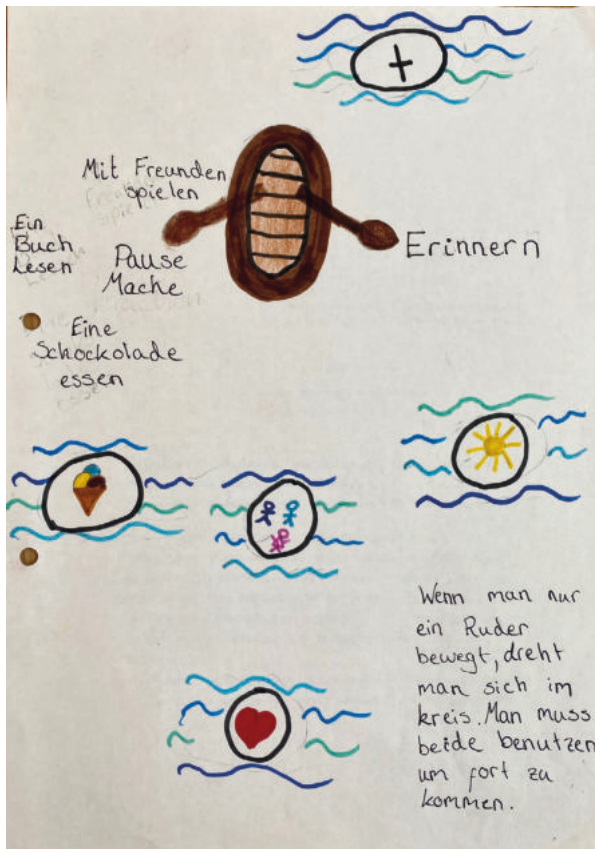 Mit Freunden
spielen
Ein
Buch
Lesen
Pause
Mache
Erinnern
Eine
Schockolade
essen
Wenn man nur
ein Ruder
bewegt, dreht
man sich im
kreis. Man muss
beide benutzen
um fort zu
kommen.